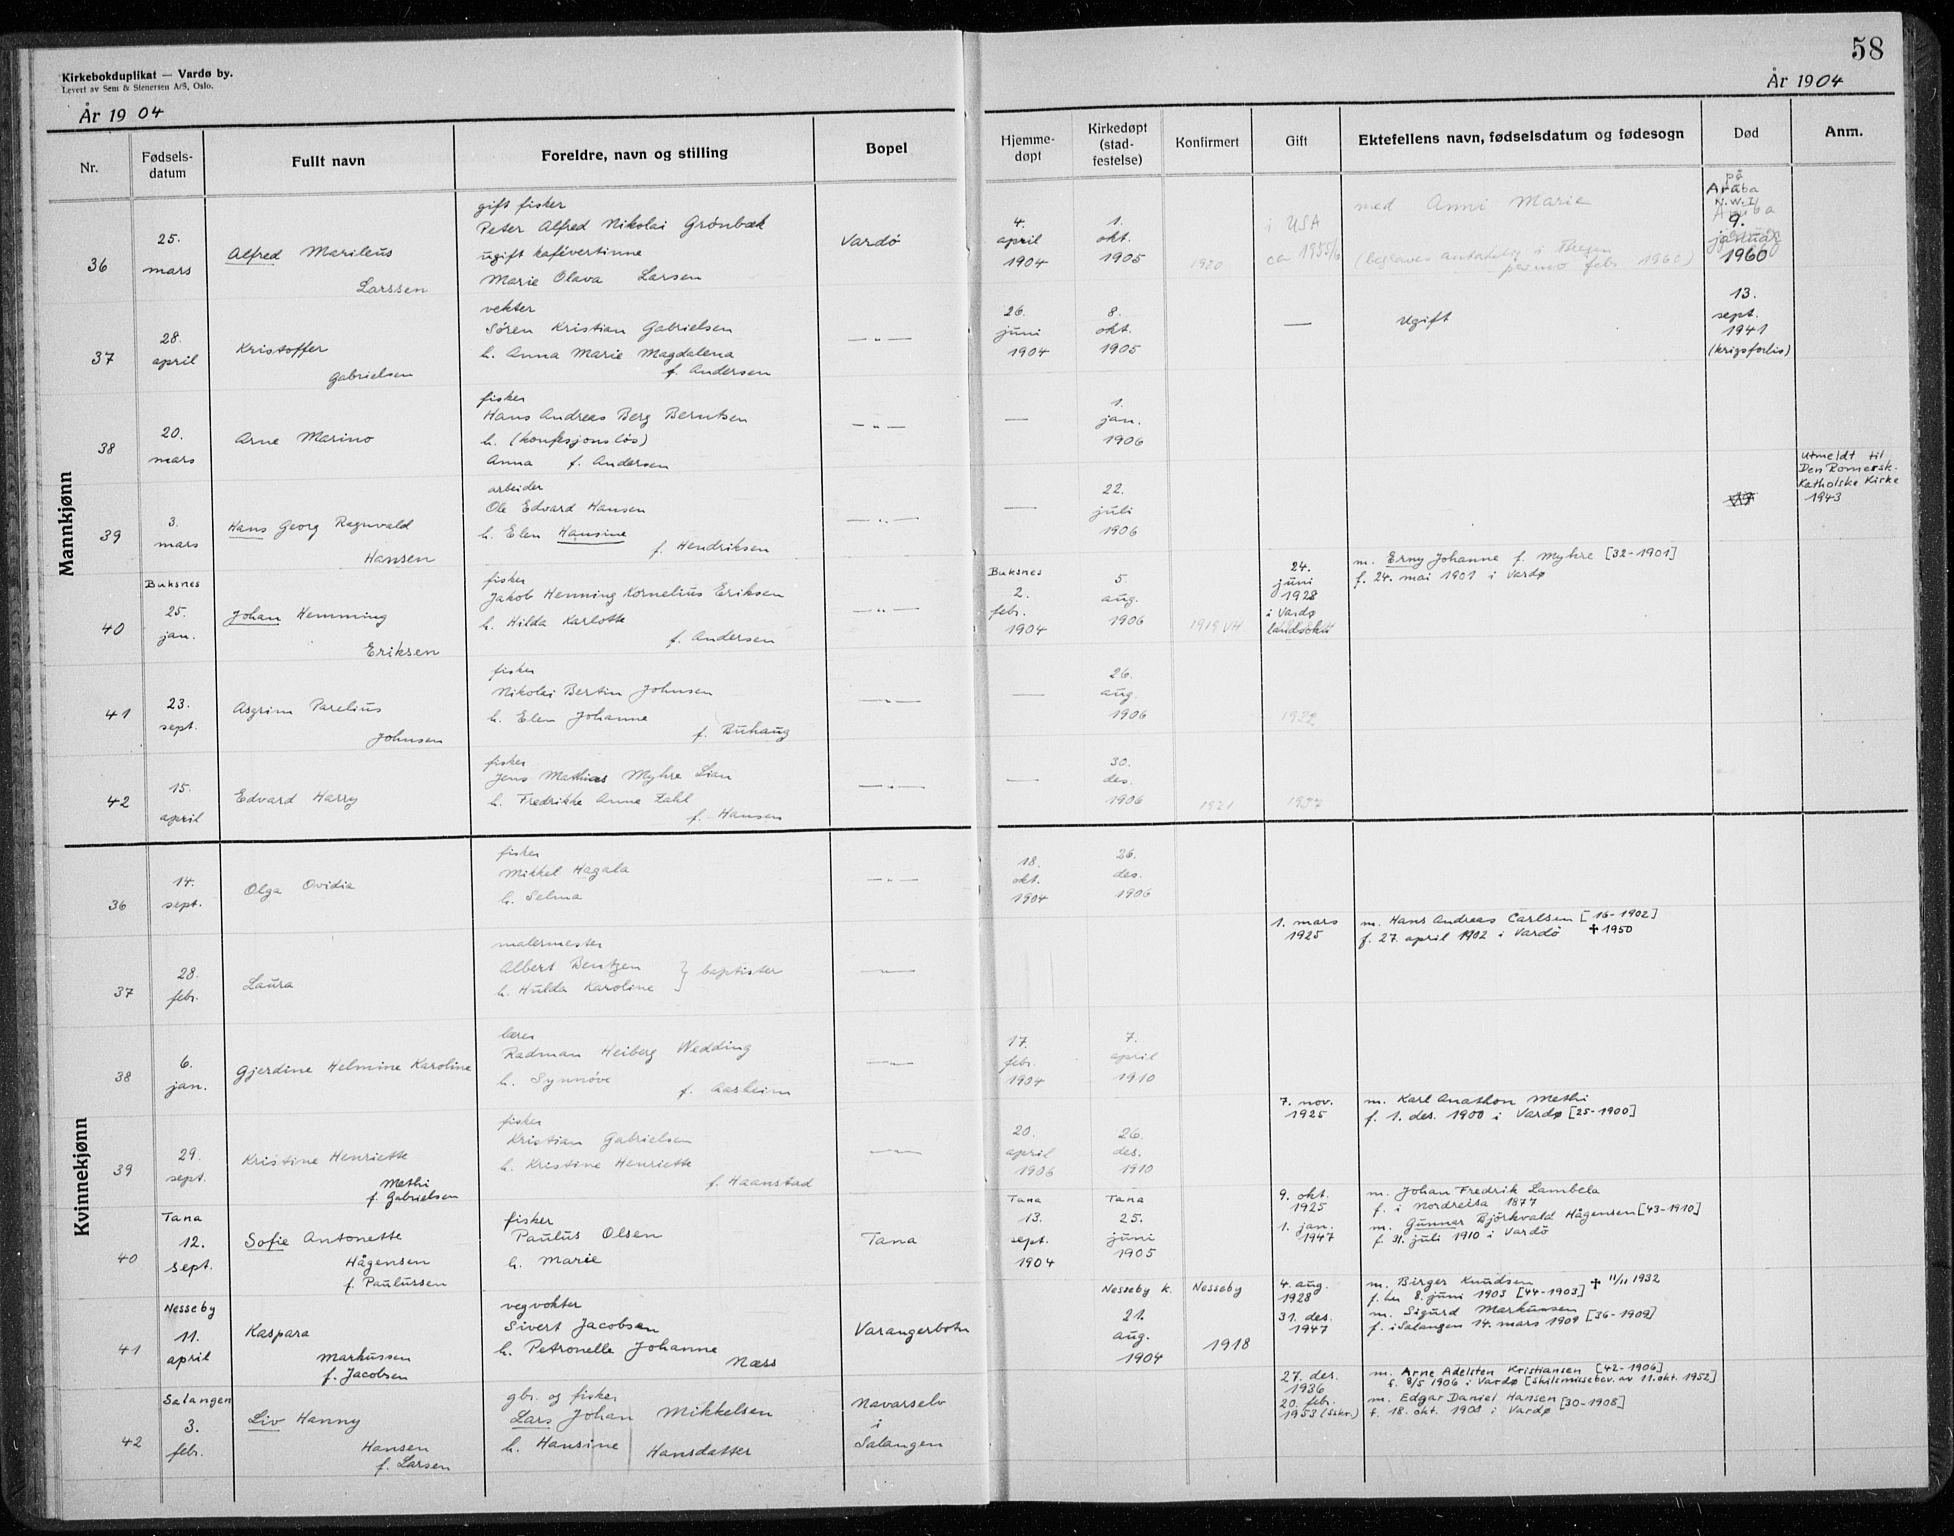 58
Kirkebokduplikat — Vardø by.
Levert av Sem & Stenersen A/S, Oslo.
År 1904
År 1904
Nr.
Fødsels-
datum
Fullt navn
Foreldre, navn og stilling
Bopel
Hjemme-
døpt
Kirkedøpt
(stad-
festelse)
Konfirmert
Gift
Ektefellens navn, fødselsdatum og fødesogn
Død
Anm.
Mannkjønn
36
25.
mars
Alfred Marileus
Larssen
gift fisker
Peter Alfred Nikolai Grönbæk
ugift kafévertinne
Marie Olava Larsen
Vardö
4.
april
1904
1.
okt.
1905
1920
i USA
ca 1955/6
med Anni Marie
på
Aruba
N.W.I
9.
januar
1960
37
28.
april
Kristoffer
Gabrielsen
vekter
Sören Kristian Gabrielsen
h. Anna Marie Magdalena
f. Andersen
— " —
26.
juni
1904
8.
okt.
1905
—
Ugift
13.
sept.
1941
(krigsforlis)
38
20.
mars
Arne Marino
fisker
Hans Andreas Berg Berntsen
h. (konfesjonslös)
Anna f. Andersen
— " —
—
1.
jan.
1906
39
3.
mars
Hans Georg Ragnvald
Hansen
arbeider
Ole Edvard Hansen
h. Elen Hansine
f. Hendriksen
— " —
—
22.
juli
1906
utmeldt til
Den Romersk-
Katholske Kirke
1943
40
Buksnes
25.
jan.
Johan Hemming
Eriksen
fisker
Jakob Henning Kornelius Eriksen
h. Hilda Karlotte
f. Andersen
— " —
Buksnes
2.
febr.
1904
5.
aug.
1906
1919 VH
24.
juni
1928
i Vardø
landsokn
m. Erny Johanne f. Myhre [32-1901]
f. 24. mai 1901 i Vardø
41
23.
sept.
Asgrim Parelius
Johnsen
fisker
Nikolai Bertin Johnsen
h. Elen Johanne
f. Buhaug
— " —
—
26.
aug.
1906
1932
42
15.
april
Edvard Harry
fisker
Jens Mathias Myhre Lian
h. Fredrikke Anne Zahl
f. Hansen
— " —
—
30.
des.
1906
1921
1937
Kvinnekjønn
36
14.
sept.
Olga Ovidia
fisker
Mikkel Hagala
h. Selma
— " —
18.
okt.
1904
26.
des.
1906
37
28.
febr.
Laura
malermester
Albert Bentzen
h. Hulda Karoline } baptister
— " —
1. mars
1925
m. Hans Andreas Carlsen [16-1902]
f. 27. april 1902 i Vardö ✝ 1950
38
6.
jan.
Gjerdine Helmine Karoline
lærer
Radman Heiberg Wedding
h. Synnöve
f. Aarheim
— " —
17.
febr.
1904
7.
april
1910
39
29.
sept.
Kristine Henriette
Methi
f. Gabrielsen
fisker
Kristian Gabrielsen
h. Kristine Henriette
f. Haanstad
— " —
20.
april
1906
26.
des.
1910
7. nov.
1925
m. Karl Anathon Methi
f. 1. des. 1900 i Vardø [25-1900]
40
Tana
12.
sept.
Sofie Antonette
Hågensen
f. Paulussen
fisker
Paulus Olsen
h. Marie
Tana
Tana
13.
sept.
1904
Tana
25.
juni
1905
9. okt.
1925
1. jan.
1947
m. Johan Fredrik Lambela
f. i Nordreisa 1877
m. Gunnar Björkvald Hågensen [43-1910]
f. 31. juli 1910 i Vardö
41
Nesseby
11.
april
Kaspara
Markussen
f. Jacobsen
vegvokter
Sivert Jacobsen
h. Petronelle Johanne
Næss
Varangerbotn
Nesseby k.
21.
aug.
1904
Nesseby
1918
4. aug.
1928
31. des.
1947
m. Birger Knudsen ✝ 11/11 1932
f. her 8. juni 1903 [44-1903]
m. Sigurd Markussen [36-1909]
f. i Salangen 14. mars 1909
42
Salangen
3.
febr.
Liv Hanny
Hansen
f. Larsen
gbr. og fisker
Lars Johan Mikkelsen
h. Hansine Hansdatter
Navarselv
i
Salangen
27. des.
1936
20. febr.
1953 (sskr.)
m. Arne Adelsten Kristiansen [42-1906]
f. 8/5 1906 i Vardø [skilsmissebev. av 11. okt. 1952]
m. Edgar Daniel Hansen [30-1908]
f. 18. okt. 1908 i Vardø